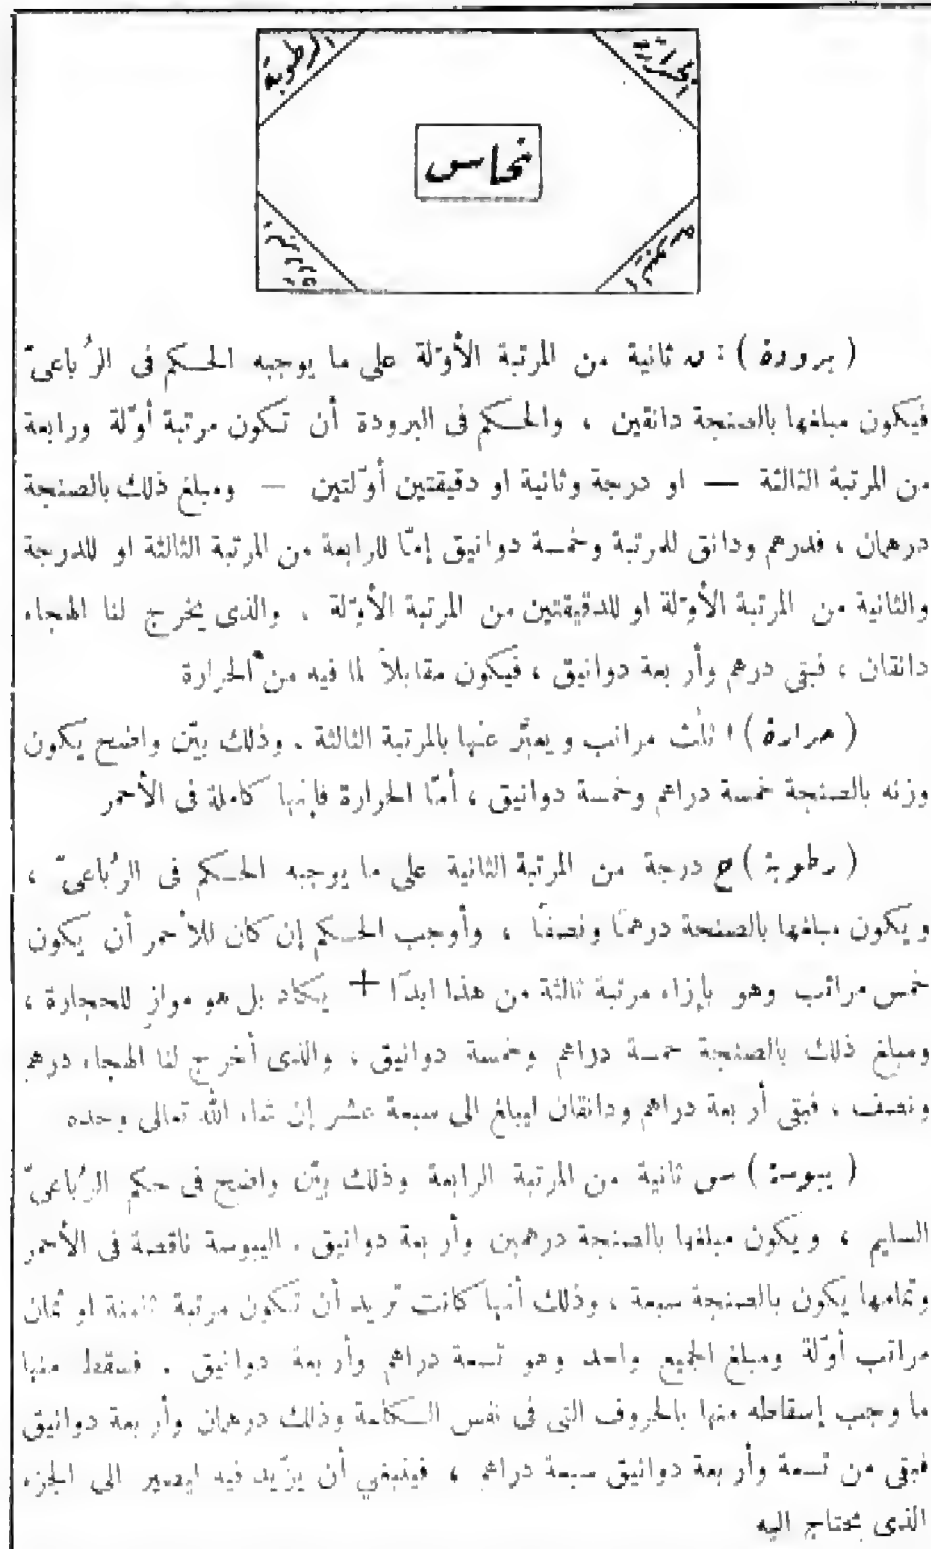 الرطوبة
الحرارة
نحاس
(برودة): ن ثانية من المرتبة الأوّلة على ما يوجبه الحكم فى الرُباعىّ
فيكون مبلغها بالصنجة دانقين ، والحكم فى البرودة أن تكون مرتبة أوّلة ورابعة
من المرتبة الثالثة — او درجة وثانية او دقيقتين أوّلتين — ومبلغ ذلك بالصنجة
درهمان ، فدرهم ودانق للمرتبة وخمسة دوانيق إمّا للرابعة من المرتبة الثالثة او للدرجة
والثانية من المرتبة الأوّلة او للدقيقتين من المرتبة الأوّلة . والذى يخرج لنا الهجاء
دانقان ، فبقى درهم وأربعة دوانيق ، فيكون مقابلاً لما فيه من الحرارة
(حرارة) ا ثلٰث مراتب ويعبّر عنها بالمرتبة الثالثة . وذلك بيّن واضح يكون
وزنه بالصنجة خمسة دراهم وخمسة دوانيق ، أمّا الحرارة فإنها كاملة فى الأحمر
(رطوبة) ح درجة من المرتبة الثانية على ما يوجبه الحكم فى الرُباعىّ ،
ويكون مبلغها بالصنجة درهمًا ونصفًا ، وأوجب الحكم إن كان للأحمر أن يكون
خمس مراتب وهو بإزاء مرتبة ثالثة من هذا ابدًا + يكاد بل هو موازٍ للحجارة ،
ومبلغ ذلك بالصنجة خمسة دراهم وخمسة دوانيق ، والذى أخرج لنا الهجاء درهم
ونصف ، فبقى أربعة دراهم ودانقان ليبلغ الى سبعة عشر إن شاء الله تعالى وحده
(يبوسة) س ثانية من المرتبة الرابعة وذلك بيّن واضح فى حكم الرُباعىّ
السليم ، ويكون مبلغها بالصنجة درهمين وأربعة دوانيق . اليبوسة ناقصة فى الأحمر
وتمامها يكون بالصنجة سبعة ، وذلك أنها كانت تريد أن تكون مرتبة ثامنة او ثمان
مراتب أوّلة ومبلغ الجميع واحد وهو تسعة دراهم وأربعة دوانيق . فسقط منها
ما وجب إسقاطه منها بالحروف التى فى نفس الكلمة وذلك درهمان وأربعة دوانيق
فبقى من تسعة وأربعة دوانيق سبعة دراهم ، فينبغى أن يزّيد فيه ليصير الى الجزء
الذى يحتاج اليه